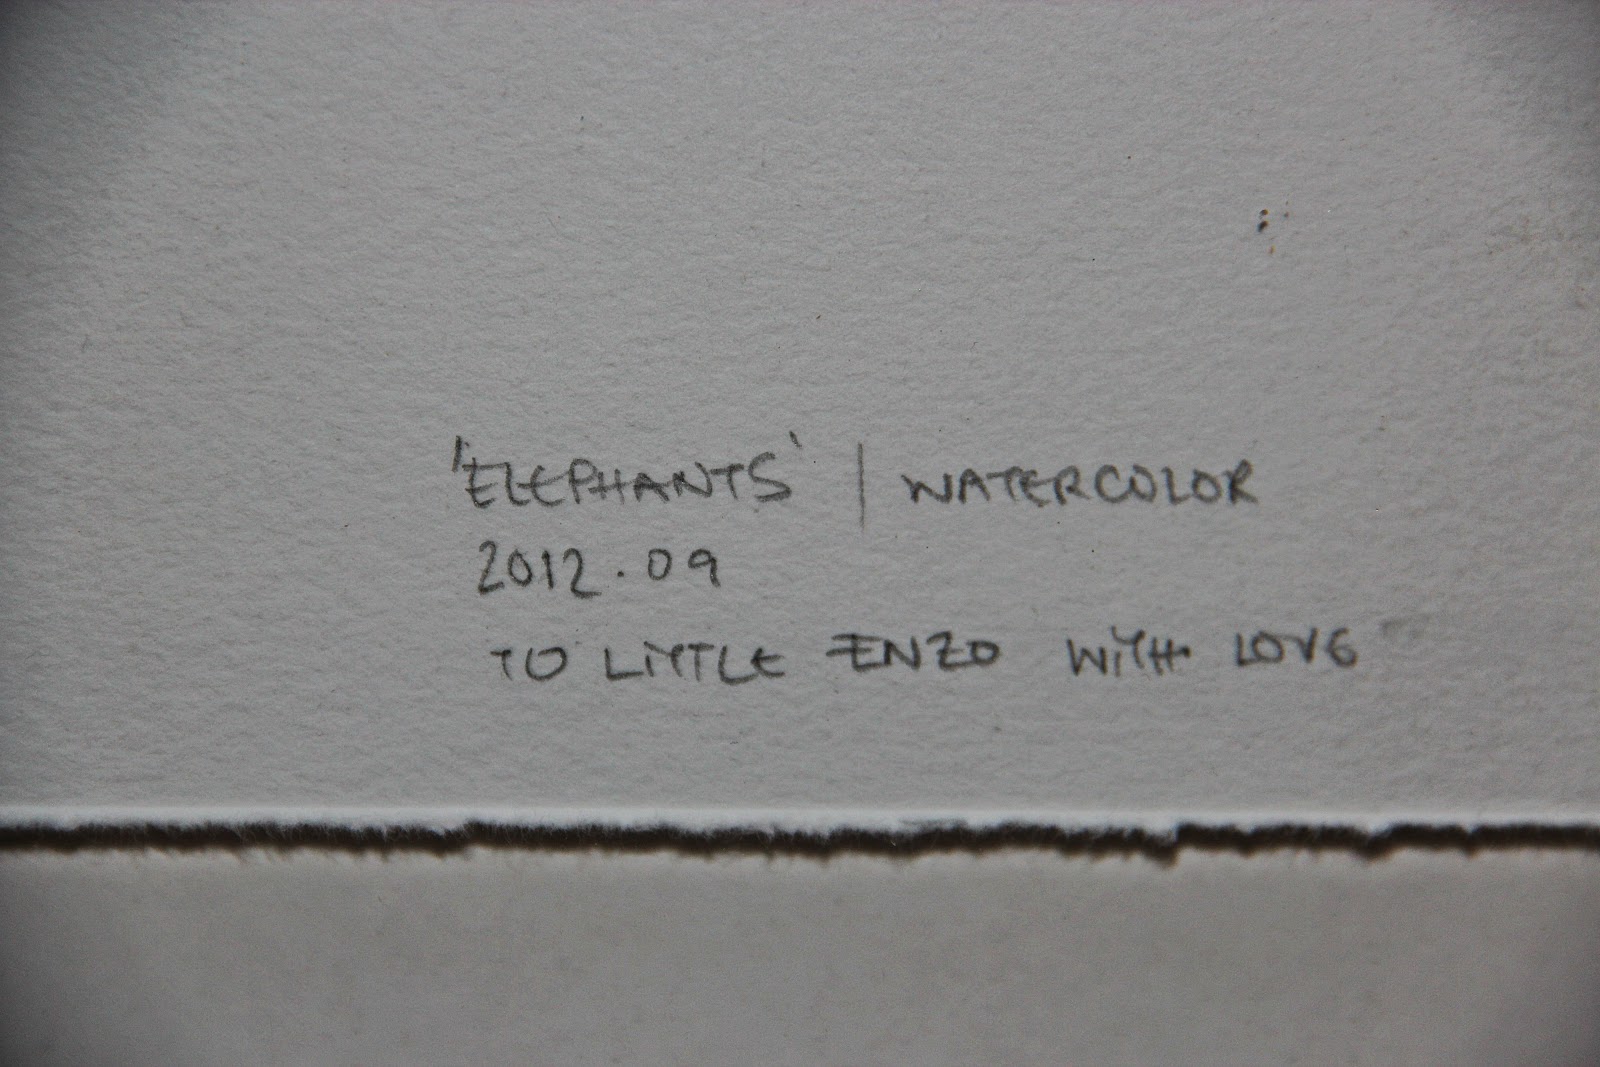 'ELEPHANTS' | WATERCOLOR
2012.09
TO LITTLE ENZO WITH LOVE